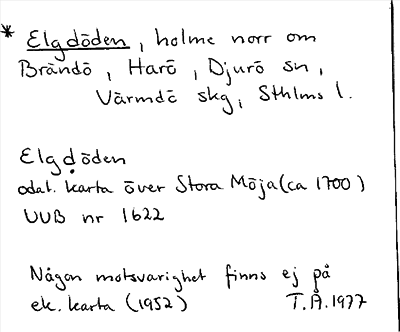 * Elgdöden, holme norr om
Brändö, Harö, Djurö sn,
Värmdö skg, Sthlms l.
Elgḍöden
odat. karta över Stora Möja (ca 1700)
UUB nr 1622
Någon motsvarighet finns ej på
ek. karta (1952) T.Å. 1977